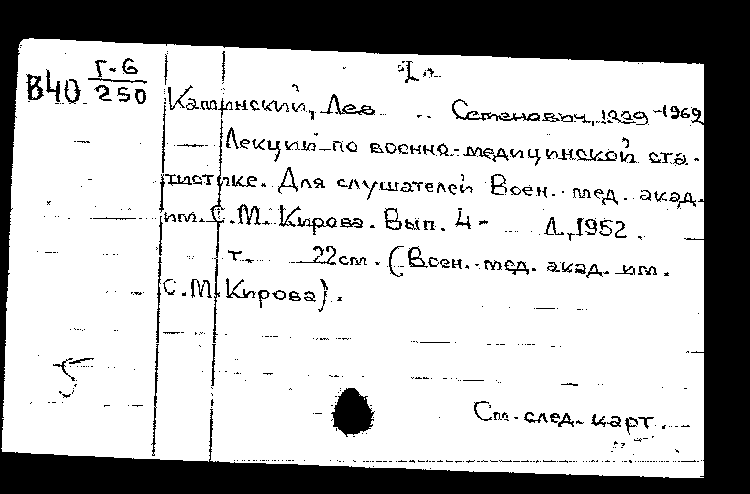 I.
В40 Г-6
250
Каминский, Лев .. Семенович, 1889-1962
Лекции по военно-медицинской ста-
тистике. Для слушателей Воен.-мед. акад.
им. С.М. Кирова. Вып. 4- Л., 1952.
т. 22см. (Воен.-мед. акад. им.
С.М. Кирова).
5
См. след. карт.